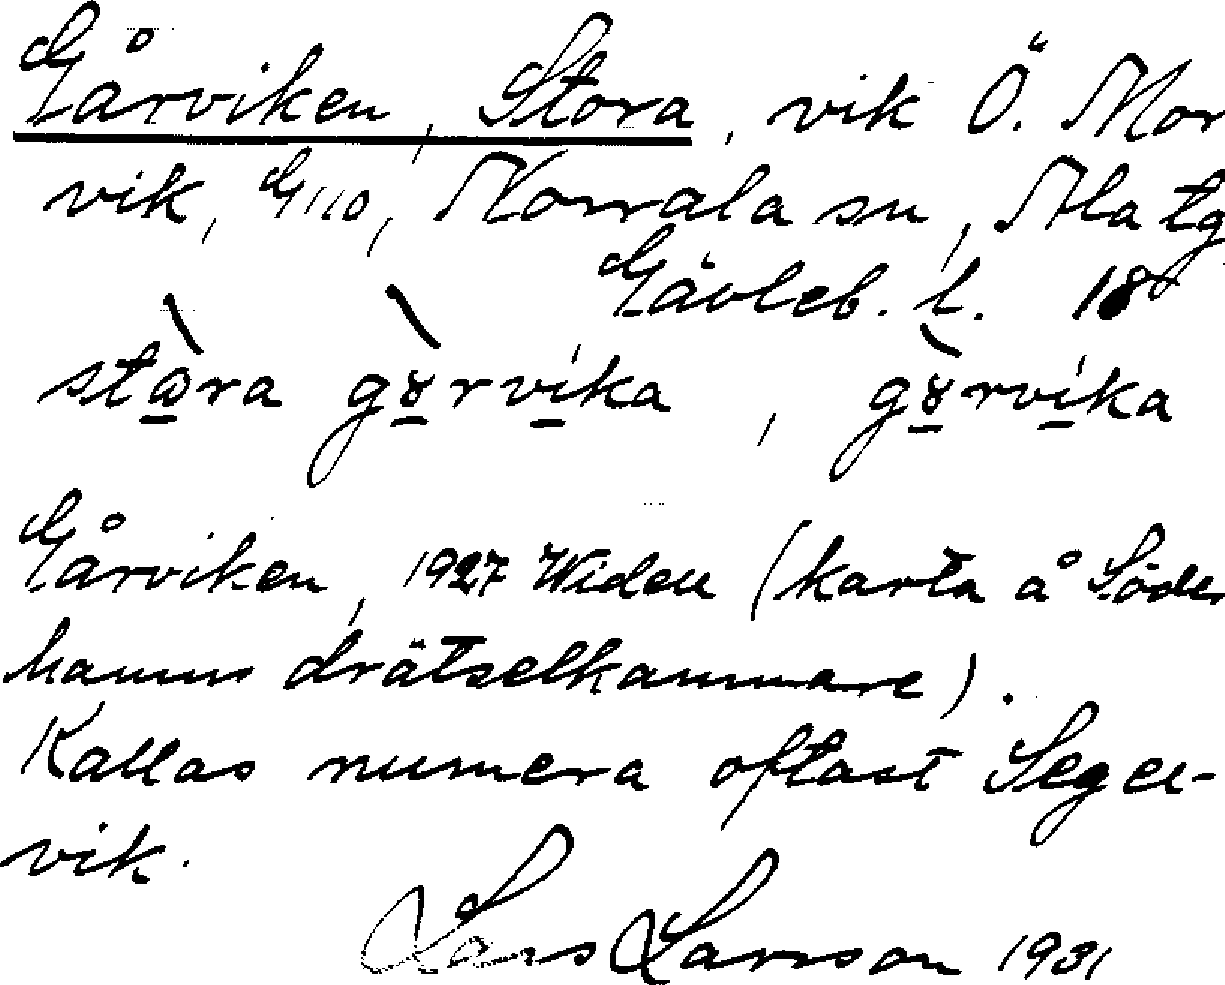 Gårviken, Stora, vik Ö. Mor
vik, G 110, Norrala sn, Ala tg
Gävleb. l. 18
stɷ̀ra gɤ̀rvika, gɤ̀rvika
Gårviken, 1927 Widen (karta å Söder
hamns drätselkammare).
Kallas numera oftast Segel-
vik.
Lars Larsson 1931